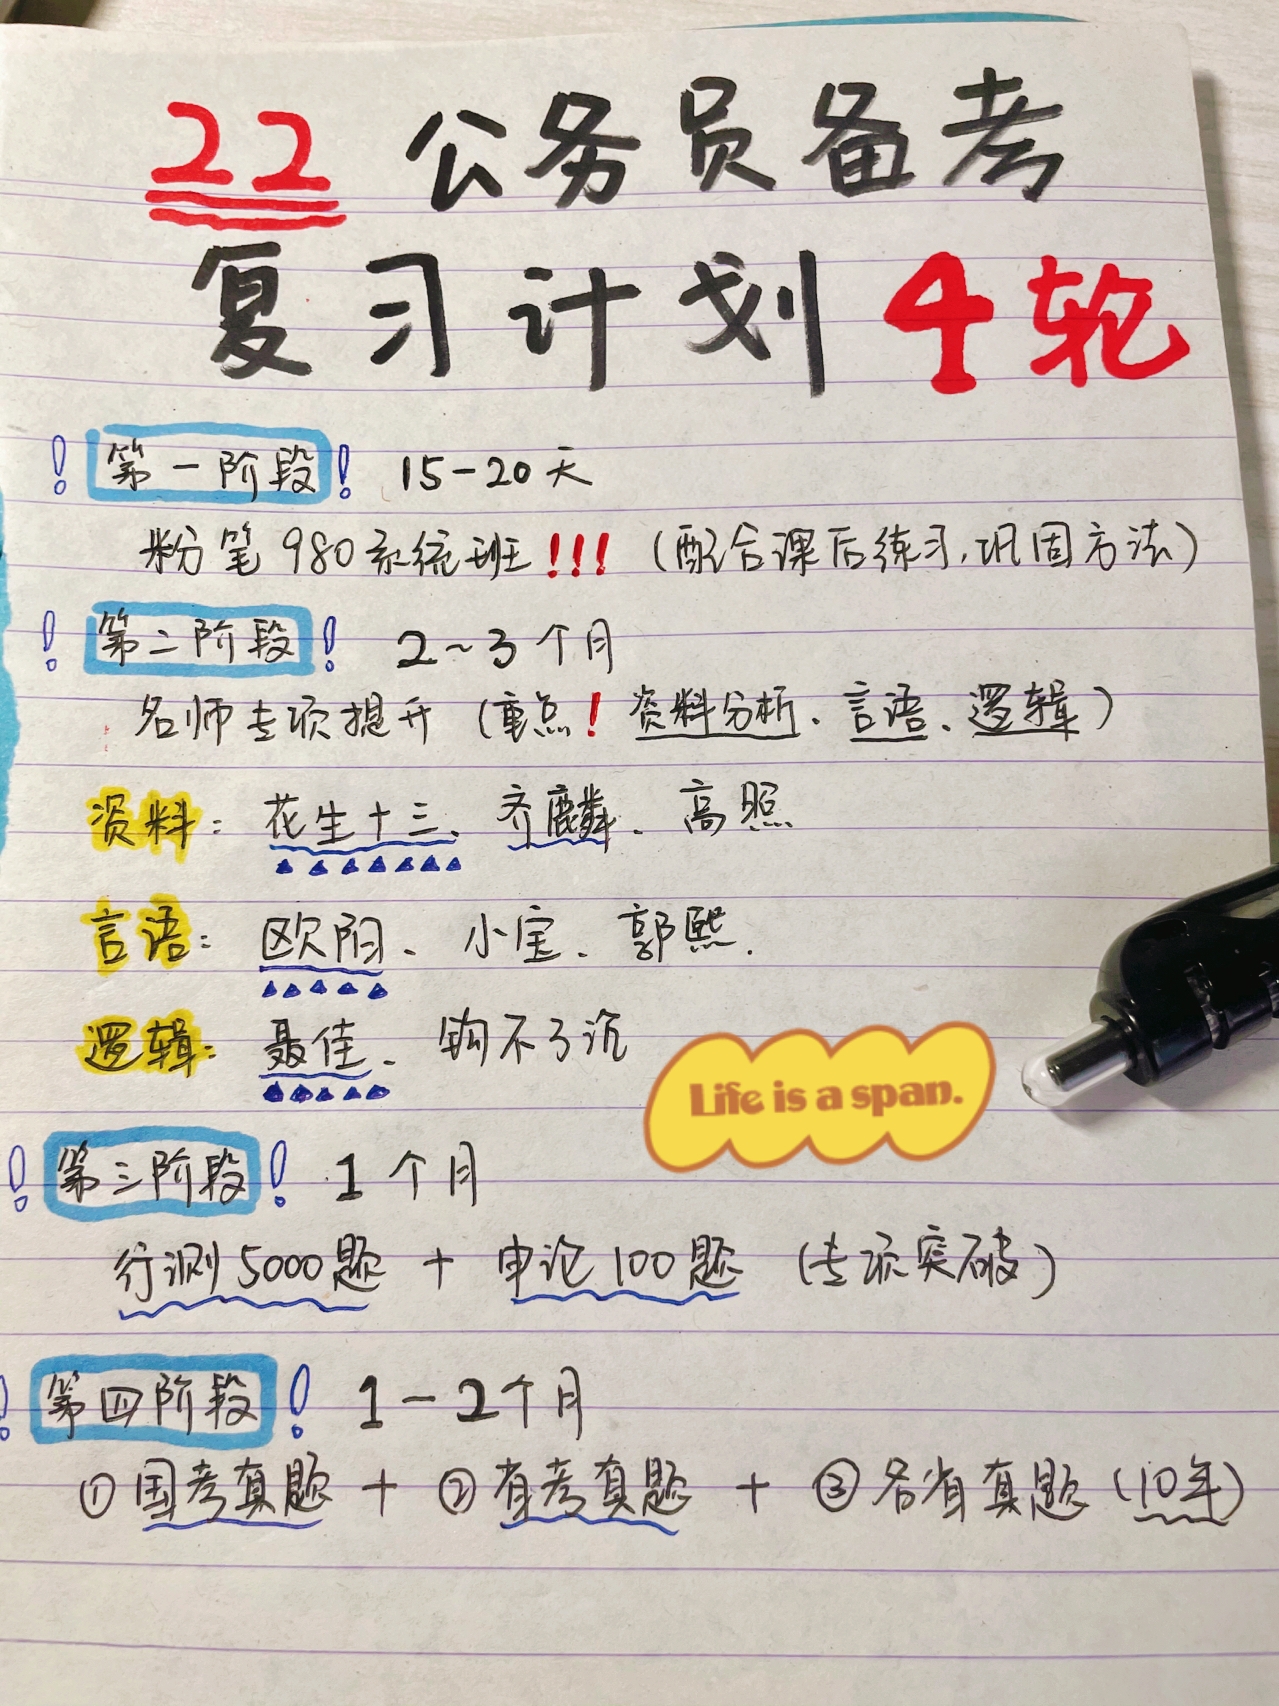 22 公务员备考
复习计划 4轮
! 第一阶段 ! 15-20天
粉笔980系统班!!! (配合课后练习,巩固方法)
! 第二阶段 ! 2~3个月
名师专项提升 (重点! 资料分析、言语、逻辑)
资料: 花生十三、齐麟、高照
言语: 欧阳、小宝、郭熙.
逻辑: 聂佳、钩不了沉
Life is a span.
! 第三阶段 ! 1个月
行测5000题 + 申论100题 (专项突破)
! 第四阶段 ! 1-2个月
①国考真题 + ②省考真题 + ③各省真题 (10年)